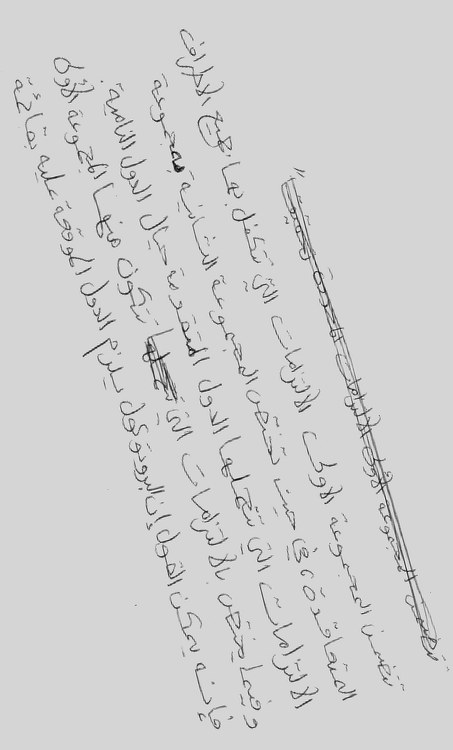 تتضمن المجموعة الأولى الالتزامات التي تتكفل بها جميع الأطراف
المتعاقدة، في حين تختص المجموعة الثانية بمجموعة
الالتزامات التي تتحملها الدول المتقدمة حيال الدول النامية.
وفيما يختص بالالتزامات التي تتكون منها المجموعة الأولى
فإنه يمكن القول إن البروتوكول يلزم الدول الموقعة عليه بقائمة